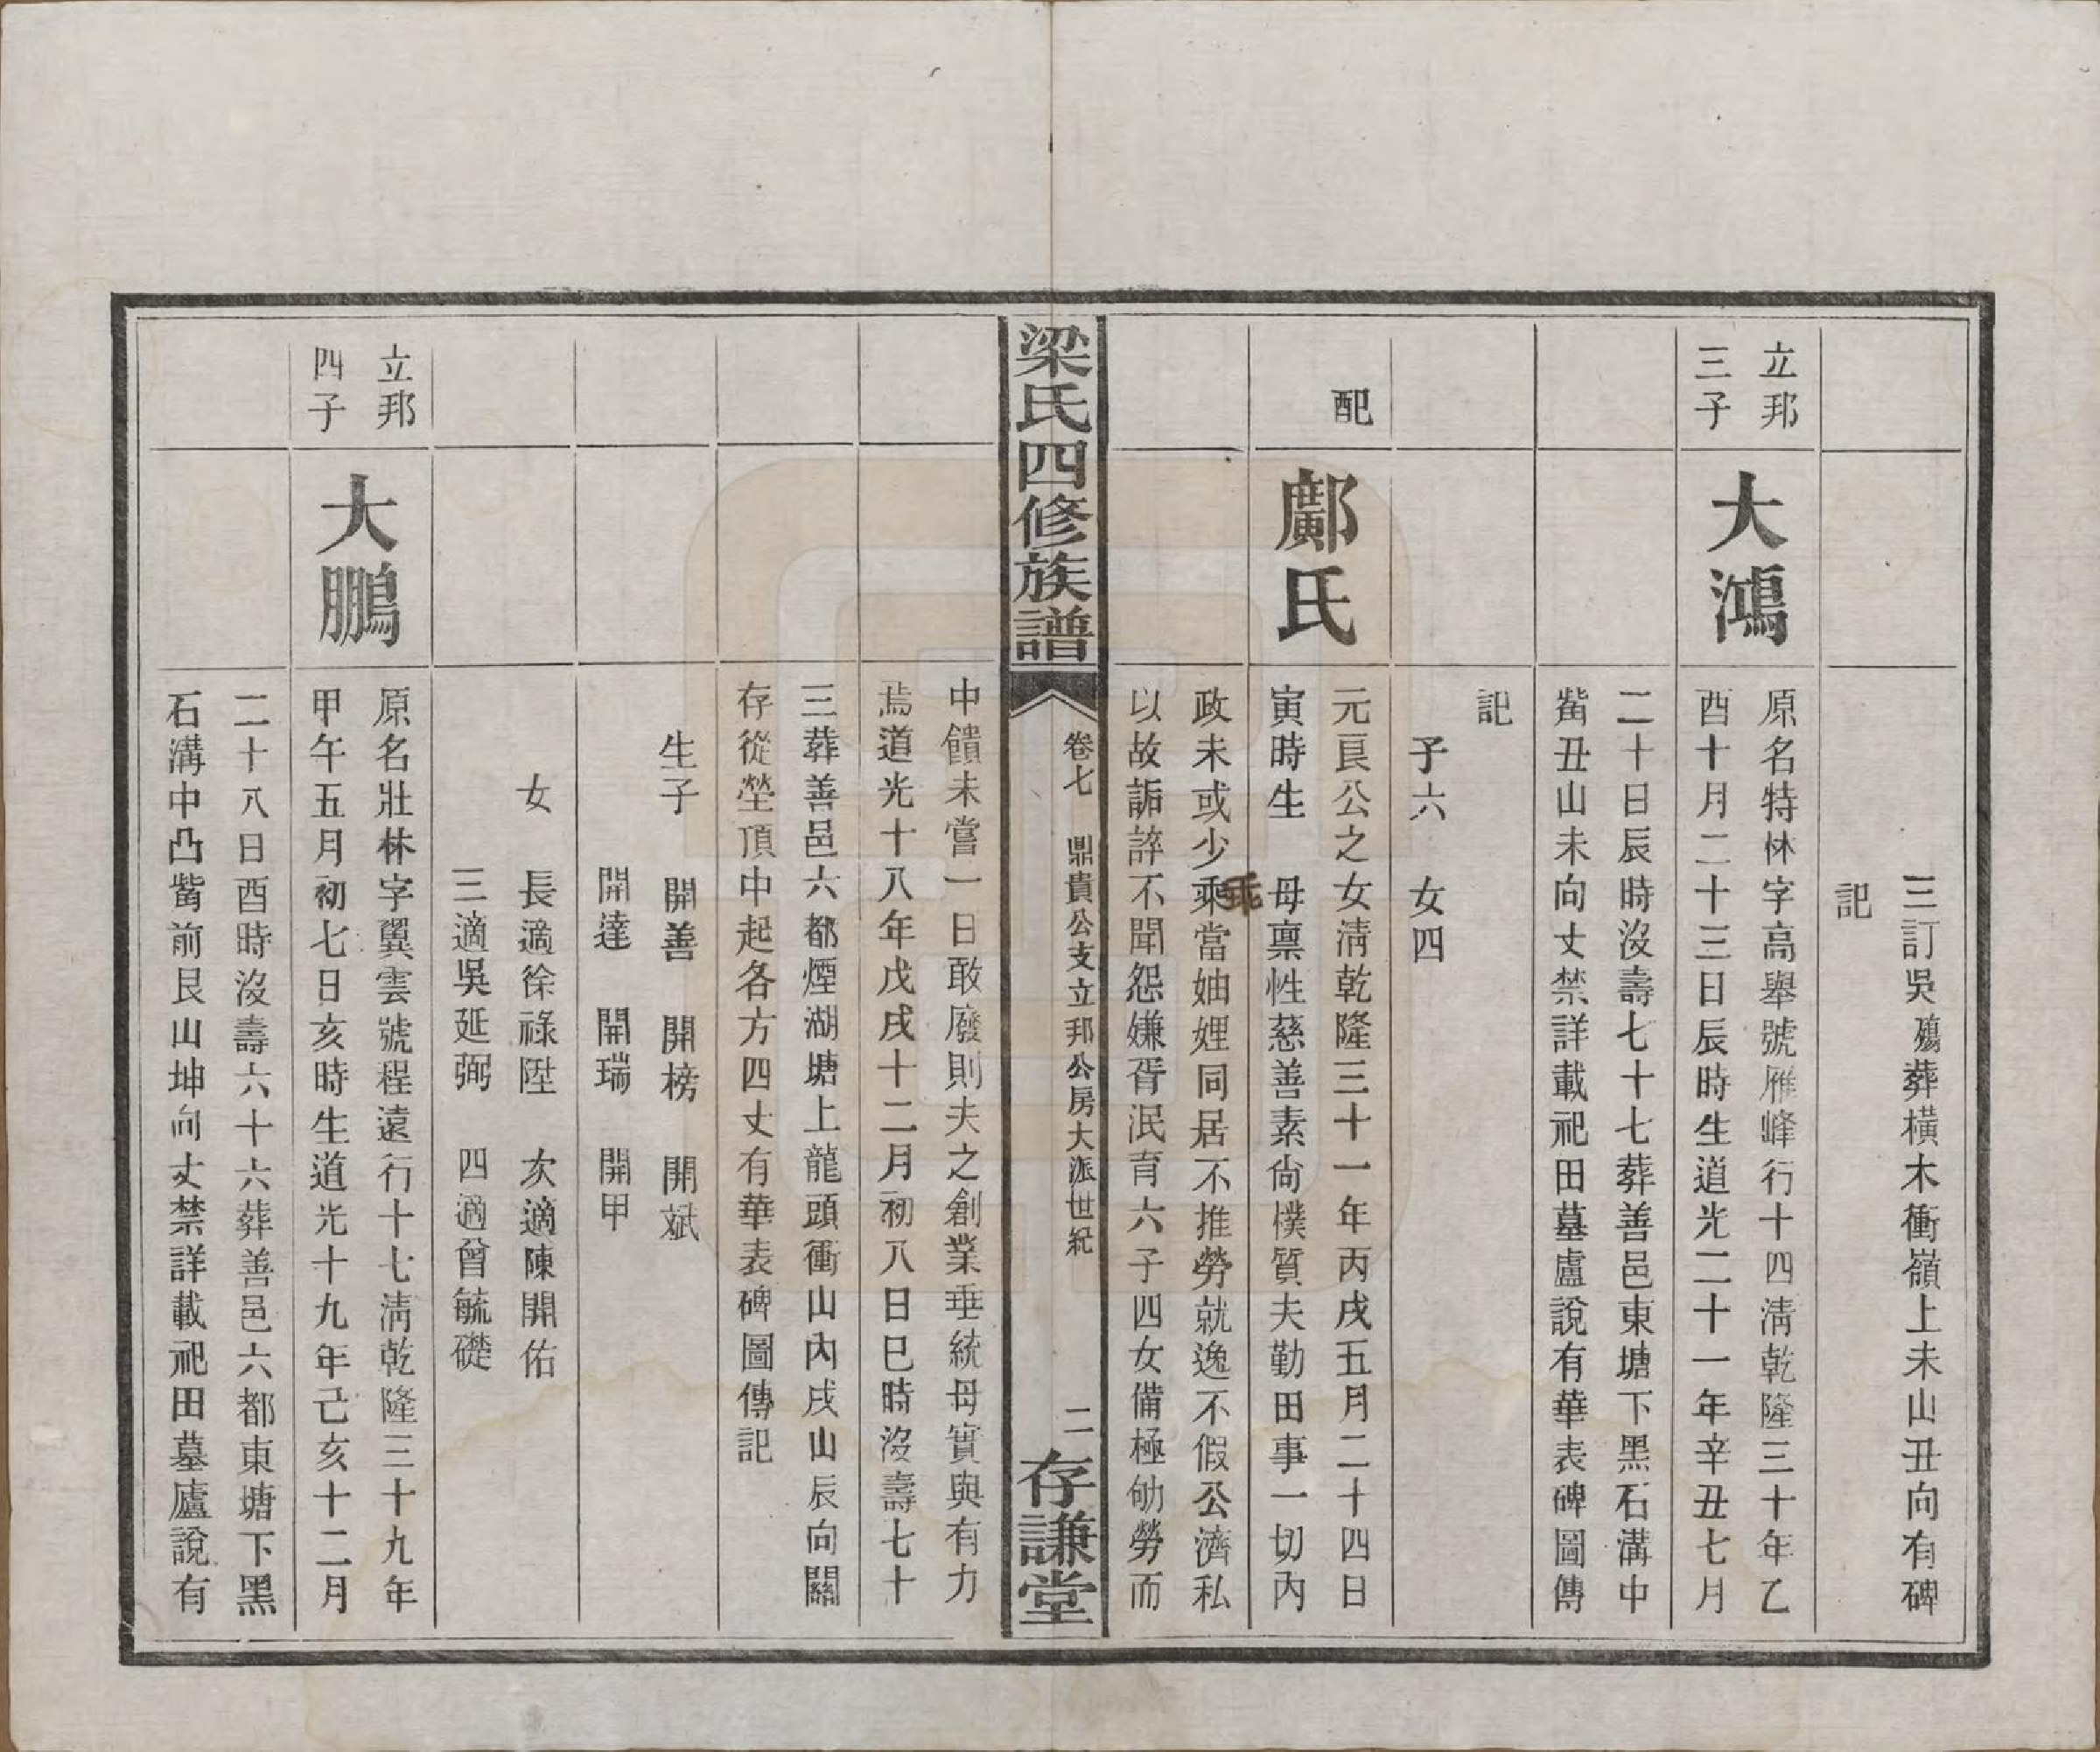 三訂吳 殤葬橫木衝嶺上未山丑向有碑
記
立邦
三子
大鴻
原名特林字高舉號雁峰行十四淸乾隆三十年乙
酉十月二十三日辰時生道光二十一年辛丑七月
二十日辰時沒壽七十七葬善邑東塘下黑石溝中
觜丑山未向丈禁詳載祀田墓廬說有華表碑圖傳
記
子六 女四
配
鄺氏
元良公之女淸乾隆三十一年丙戌五月二十四日
寅時生 母禀性慈善素尙樸質夫勤田事一切內
政未或少乘當妯娌同居不推勞就逸不假公濟私
乖
以故詬誶不聞怨嫌胥泯育六子四女備極劬勞而
梁氏四修族譜
卷七 鼎貴公支立邦公房大派世紀
二
存謙堂
中饋未嘗一日敢廢則夫之創業垂統母實與有力
焉道光十八年戊戌十二月初八日巳時沒壽七十
三葬善邑六都煙湖塘上龍頭衝山內戌山辰向關
存從塋頂中起各方四丈有華表碑圖傳記
生子 開善 開榜 開斌
開達 開瑞 開甲
女 長適徐祿陞 次適陳開佑
三適吳延弼 四適曾毓礎
立邦
四子
大鵬
原名壯林字翼雲號程遠行十七淸乾隆三十九年
甲午五月初七日亥時生道光十九年己亥十二月
二十八日酉時沒壽六十六葬善邑六都東塘下黑
石溝中凸觜前艮山坤向丈禁詳載祀田墓廬說有